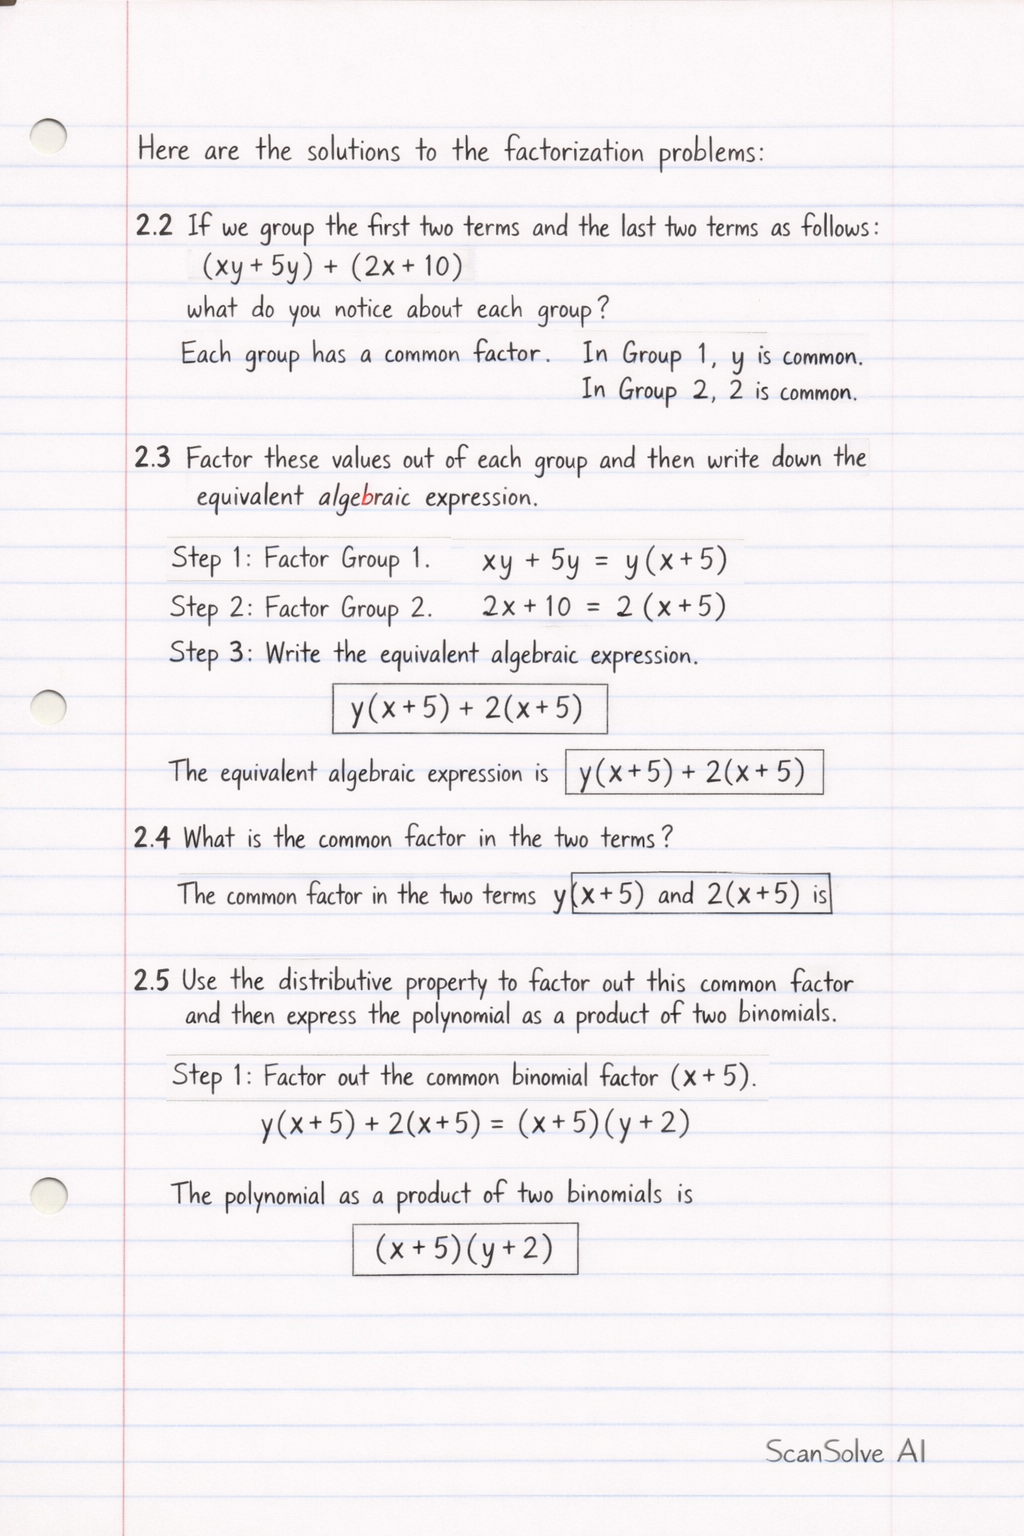 Here are the solutions to the factorization problems:
2.2 If we group the first two terms and the last two terms as follows:
(xy + 5y) + (2x + 10)
what do you notice about each group?
Each group has a common factor. In Group 1, y is common.
In Group 2, 2 is common.
2.3 Factor these values out of each group and then write down the
equivalent algebraic expression.
Step 1: Factor Group 1. xy + 5y = y(x+5)
Step 2: Factor Group 2. 2x + 10 = 2 (x+5)
Step 3: Write the equivalent algebraic expression.
y(x+5) + 2(x+5)
The equivalent algebraic expression is y(x+5) + 2(x+5)
2.4 What is the common factor in the two terms?
The common factor in the two terms y(x+5) and 2(x+5) is
2.5 Use the distributive property to factor out this common factor
and then express the polynomial as a product of two binomials.
Step 1: Factor out the common binomial factor (x+5).
y(x+5) + 2(x+5) = (x+5)(y+2)
The polynomial as a product of two binomials is
(x+5)(y+2)
ScanSolve AI